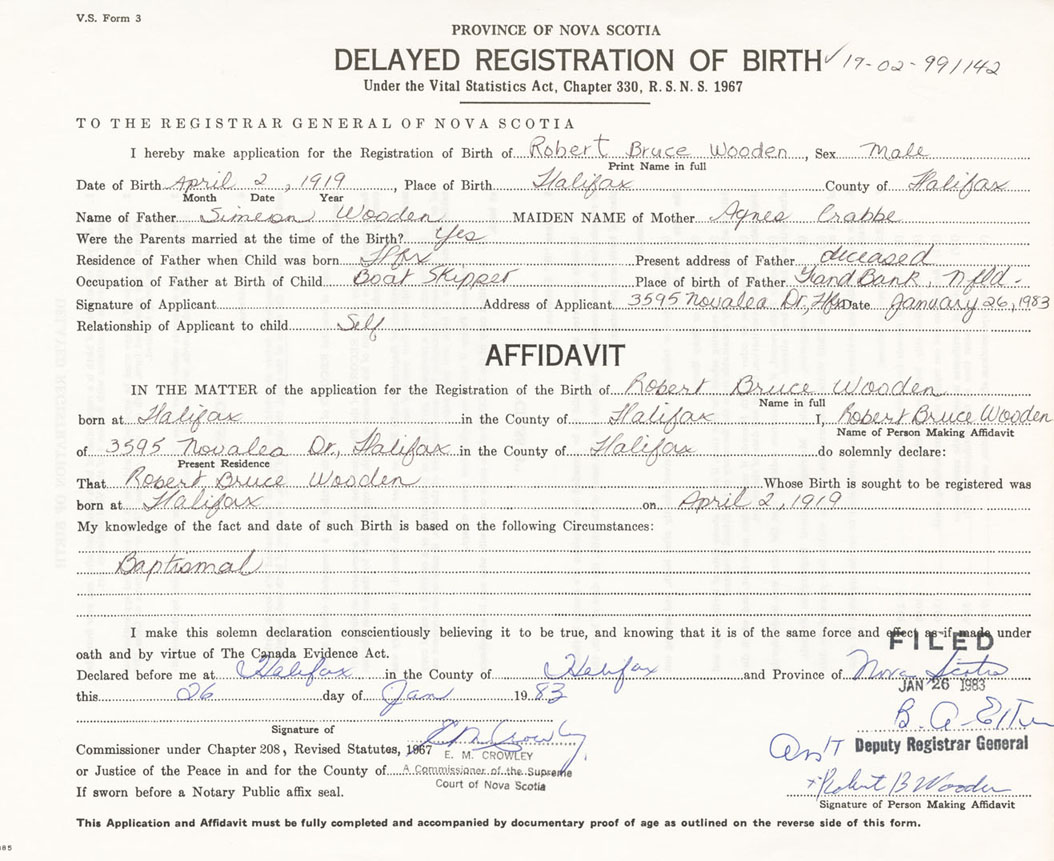 V.S. Form 3
PROVINCE OF NOVA SCOTIA
DELAYED REGISTRATION OF BIRTH ✓ 19-02-991142
Under the Vital Statistics Act, Chapter 330, R. S. N. S. 1967
TO THE REGISTRAR GENERAL OF NOVA SCOTIA
I hereby make application for the Registration of Birth of Robert Bruce Wooden, Sex Male
Print Name in full
Date of Birth April 2, 1919, Place of Birth Halifax County of Halifax
Month Date Year
Name of Father Simeon Wooden MAIDEN NAME of Mother Agnes Crabbe
Were the Parents married at the time of the Birth? Yes
Residence of Father when Child was born Hfx Present address of Father deceased
Occupation of Father at Birth of Child Boat Skipper Place of birth of Father Grand Bank, Nfld.
Signature of Applicant Address of Applicant 3595 Novalea Dr, Hfx Date January 26, 1983
Relationship of Applicant to child Self
AFFIDAVIT
IN THE MATTER of the application for the Registration of the Birth of Robert Bruce Wooden
Name in full
born at Halifax in the County of Halifax I, Robert Bruce Wooden
Name of Person Making Affidavit
of 3595 Novalea Dr., Halifax in the County of Halifax do solemnly declare:
Present Residence
That Robert Bruce Wooden Whose Birth is sought to be registered was
born at Halifax on April 2, 1919
My knowledge of the fact and date of such Birth is based on the following Circumstances:
Baptismal
I make this solemn declaration conscientiously believing it to be true, and knowing that it is of the same force and effect as if made under
FILED
oath and by virtue of The Canada Evidence Act.
Declared before me at Halifax in the County of Halifax and Province of Nova Scotia
JAN 26 1983
this 26 day of Jan 19 83
Signature of
Commissioner under Chapter 208, Revised Statutes, 1967 E. M. Crowley
E. M. CROWLEY
Deputy Registrar General
or Justice of the Peace in and for the County of A Commissioner of the Supreme
Court of Nova Scotia
If sworn before a Notary Public affix seal.
Robert B Wooden
Signature of Person Making Affidavit
This Application and Affidavit must be fully completed and accompanied by documentary proof of age as outlined on the reverse side of this form.